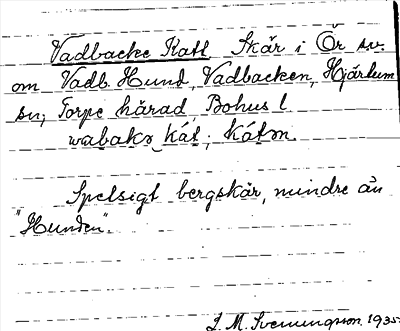 Vadbacke Katt Skär i Ör sv.
om Vadb. Hund, Vadbacken, Hjärtum
sn; Torpe härad Bohus l
wabakə kát; kátən.
Spetsigt bergskär, mindre än
"Hunden".
L. M. Svenungsson. 1935.